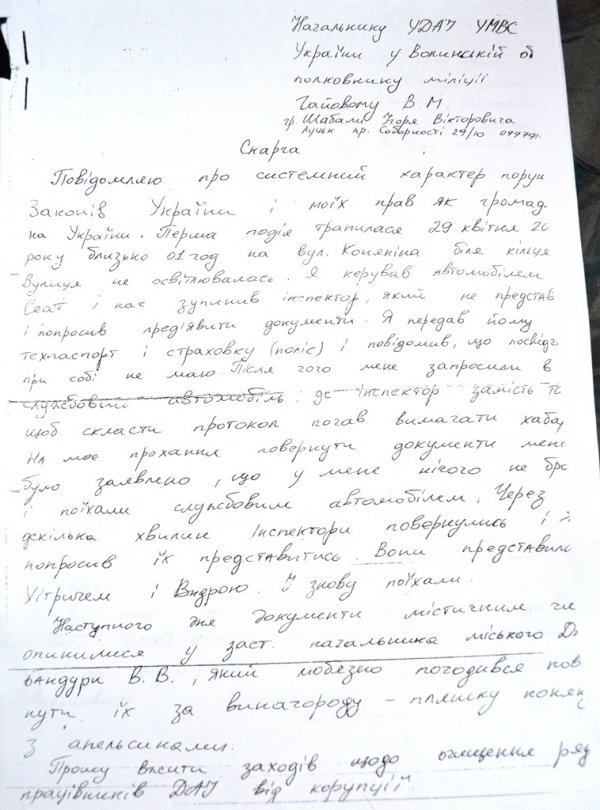 Начальнику УДАІ УМВС
України у Волинській об
полковнику міліції
Гайовому В. М.
гр. Шабали Ігоря Вікторовича
Луцьк пр. Соборності 29/10
Скарга
Повідомляю про системний характер поруш
Законів України і моїх прав як громад
на України. Перша подія трапилася 29 квітня 20
року близько 01 год на вул. Конякіна біля кільця
Вулиця не освітлювалась. Я керував автомобілем
Сеат і нас зупинив інспектор, який не представ
і попросив пред'явити документи. Я передав йому
техпаспорт і страховку (поліс) і повідомив, що посвідч
при собі не маю. Після чого мене запросили в
службовий автомобіль, де інспектор замість т
щоб скласти протокол почав вимагати хаба
На моє прохання повернути документи мені
було заявлено, що у мене нічого не бра
і поїхали службовим автомобілем. Через
декілька хвилин Інспектори повернулись і
попросив їх представитись. Вони представил
Устричем і Видрою. І знову поїхали.
Наступного дня документи містичним чи
опинилися у заст. начальника міського Д
Бандури В. В., який люб'язно погодився пов
нути їх за винагороду – пляшку коняк
з апельсинами.
Прошу вжити заходів щодо очищення ряд
працівників ДАІ від корупції.